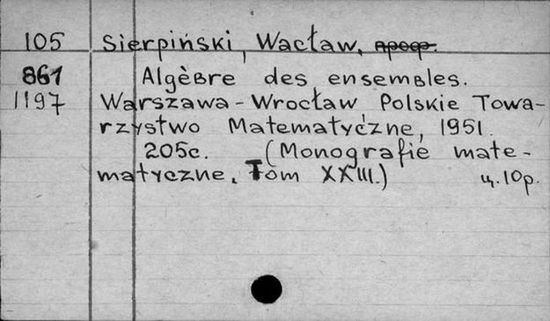 105 Sierpiński, Wacław, проф.
861 Algèbre des ensembles.
1197 Warszawa-Wrocław Polskie Towa-
rzystwo Matematyczne, 1951.
205с. (Monografie mate-
matyczne, Tom XXIII.) ц. 10р.